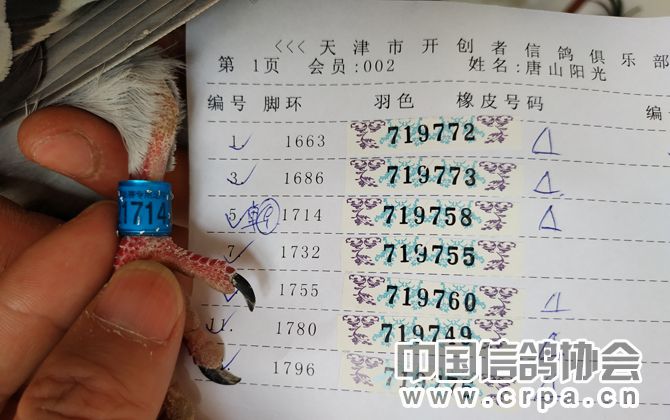 <<< 天津市开创者信鸽俱乐部
第 1页 会员:002 姓名:唐山阳光
编号 脚环 羽色 橡皮号码 编
1 1663 719772
3 1686 719773
5 1714 719758
7 1732 719755
1755 719760
11. 1780 719749
1796
1714
中国信鸽协会
www.crpa.cn